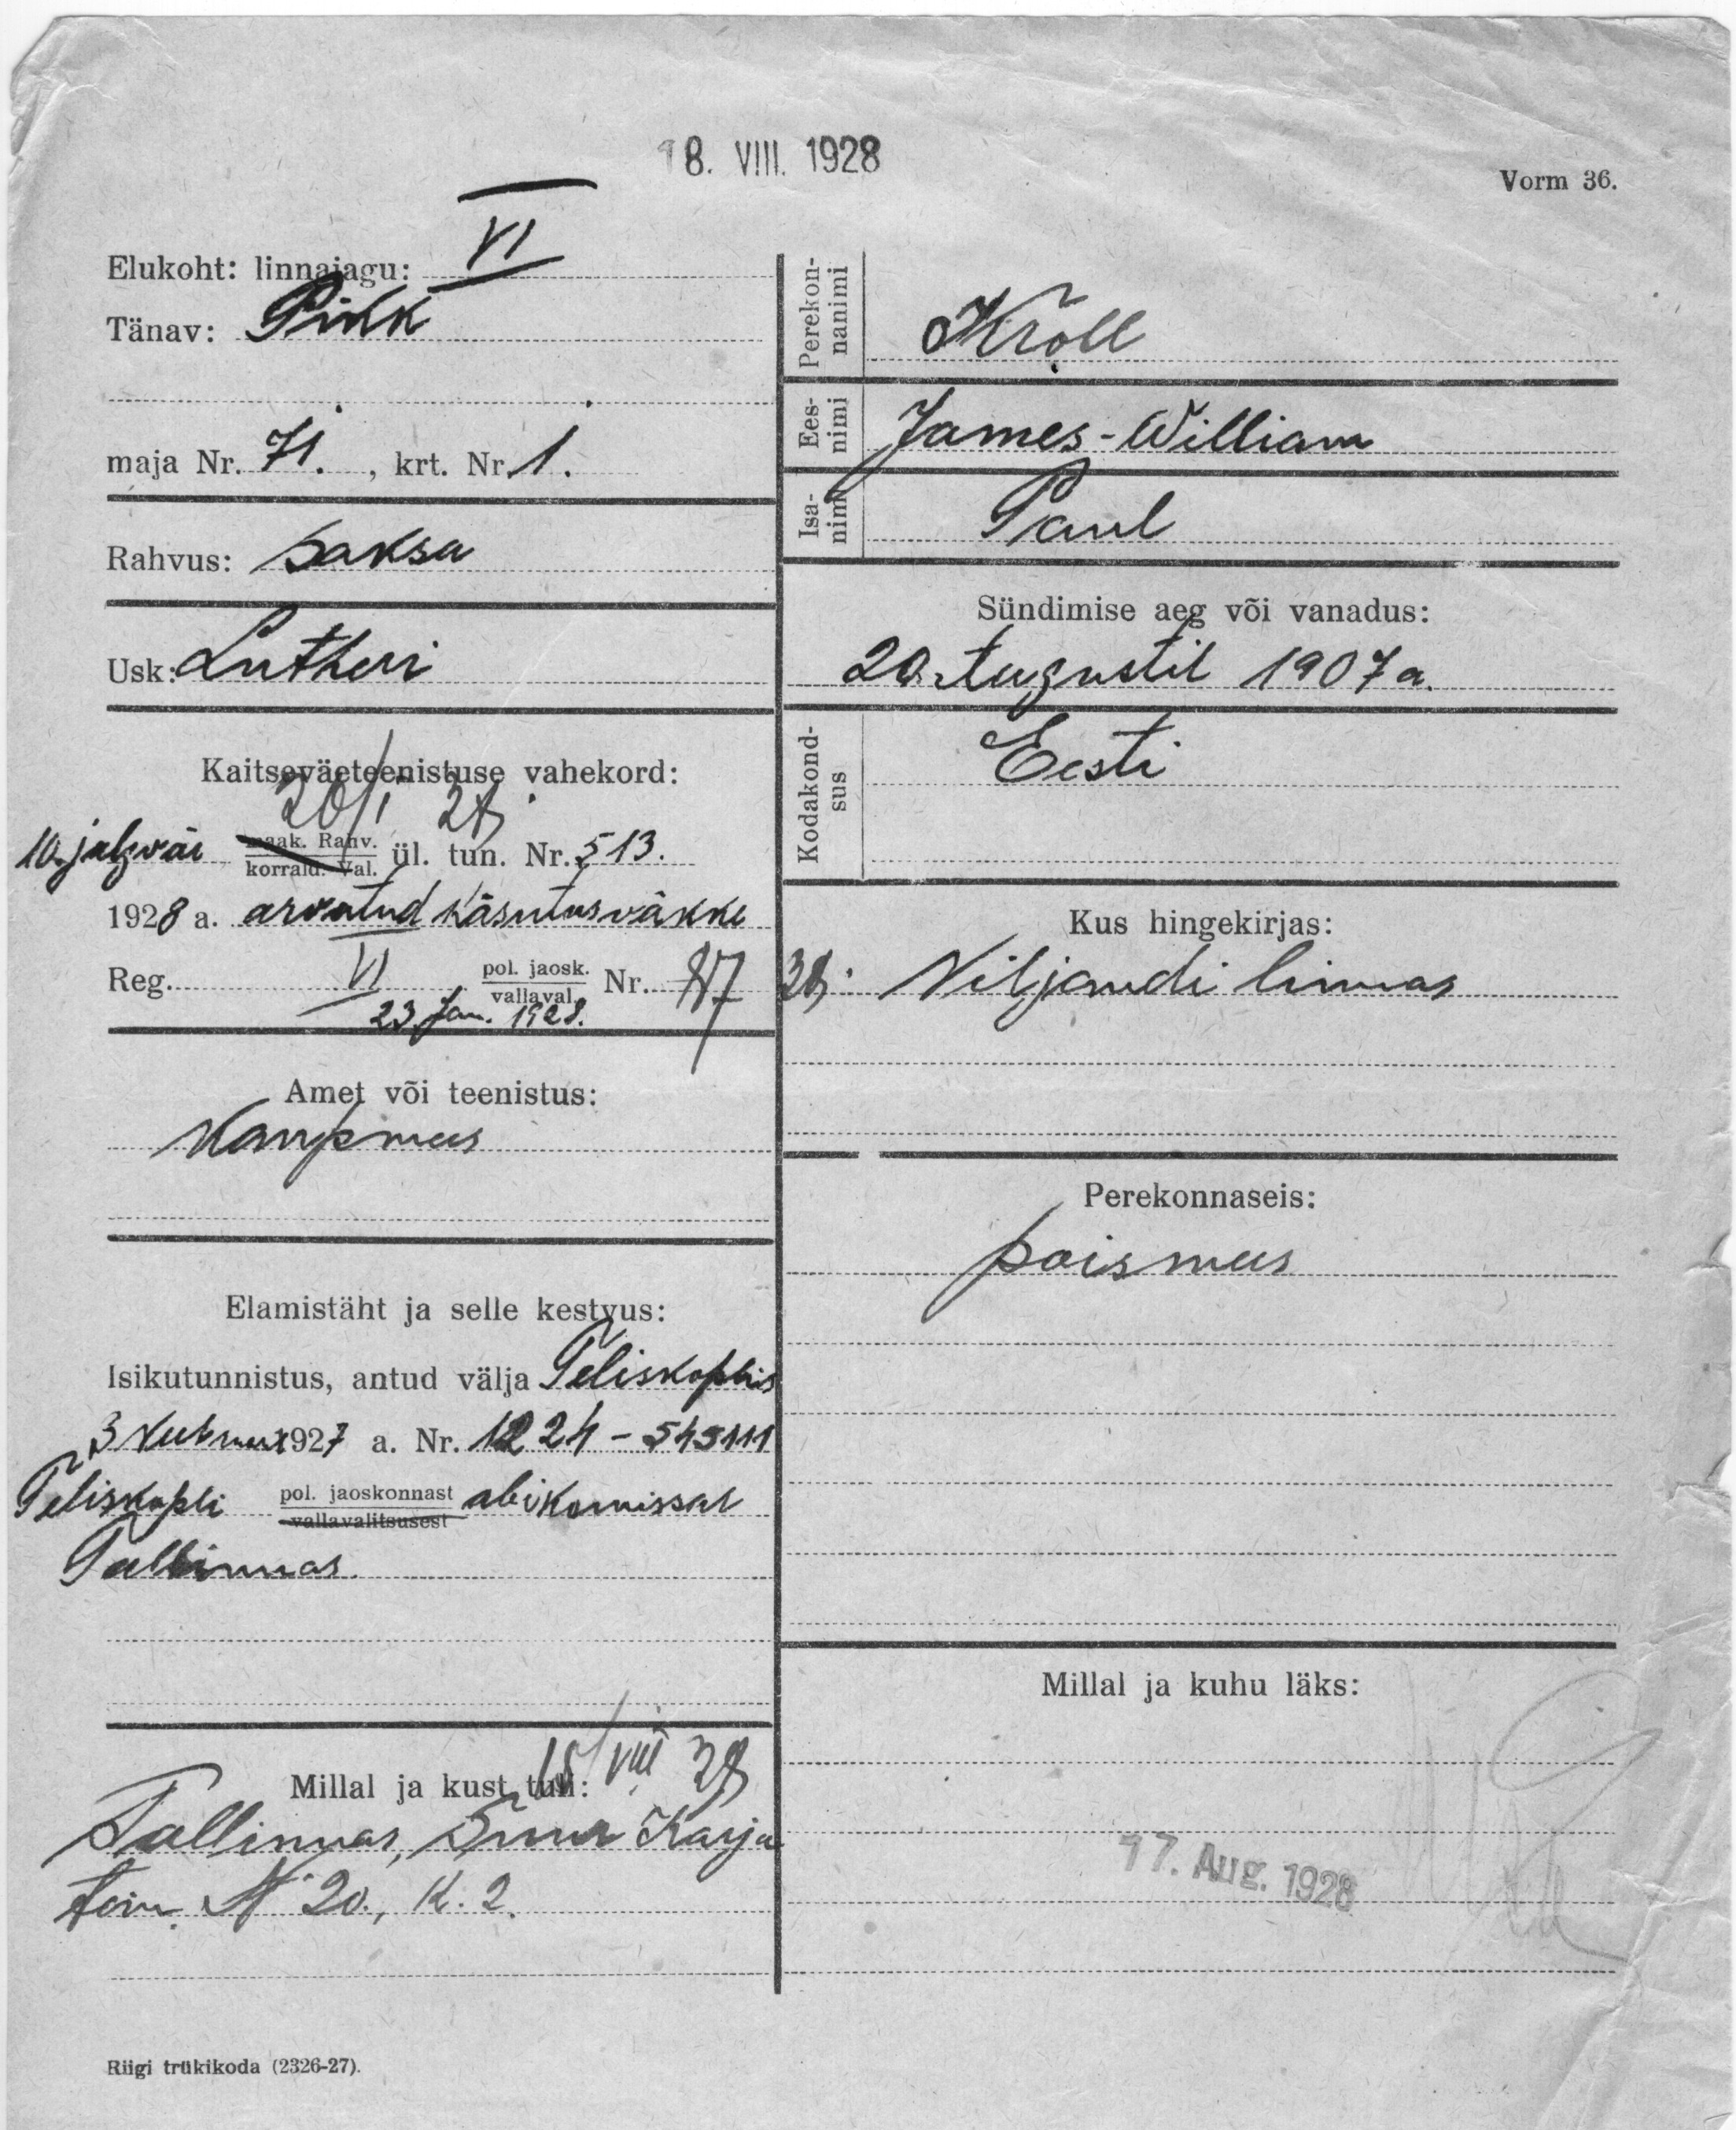 18. VIII. 1928
Vorm 36.
Elukoht: linnajagu: VI
Tänav: Pikk
maja Nr. 71., krt. Nr 1.
Rahvus: saksa
Usk: Lutheri
Kaitseväeteenistuse vahekord:
20/I 28
10. jalgväe maak. Rahv. korrald. Val. ül. tun. Nr. 513.
1928 a. arvatud käsutusväkke
Reg. VI pol. jaosk. vallaval. Nr. 87
23. Jan. 1928.
Amet või teenistus:
Kaupmees
Elamistäht ja selle kestvus:
Isikutunnistus, antud välja Teliskoplis
3 1927 a. Nr. 1224 - 545111
Teliskopli pol. jaoskonnast vallavalitsusest abikomissar
Tallinnas.
15/VIII 28
Millal ja kust tuli:
Tallinnas, Suur Karja
tän. N 20., K. 2.
Perekonnanimi Kroll
Eesnimi James-William
Isanimi Paul
Sündimise aeg või vanadus:
20. Augustil 1907 a.
Kodakondsus Eesti
Kus hingekirjas:
28; Viljandi linnas
Perekonnaseis:
poismees
Millal ja kuhu läks:
17. Aug. 1928
Riigi trükikoda (2326-27).